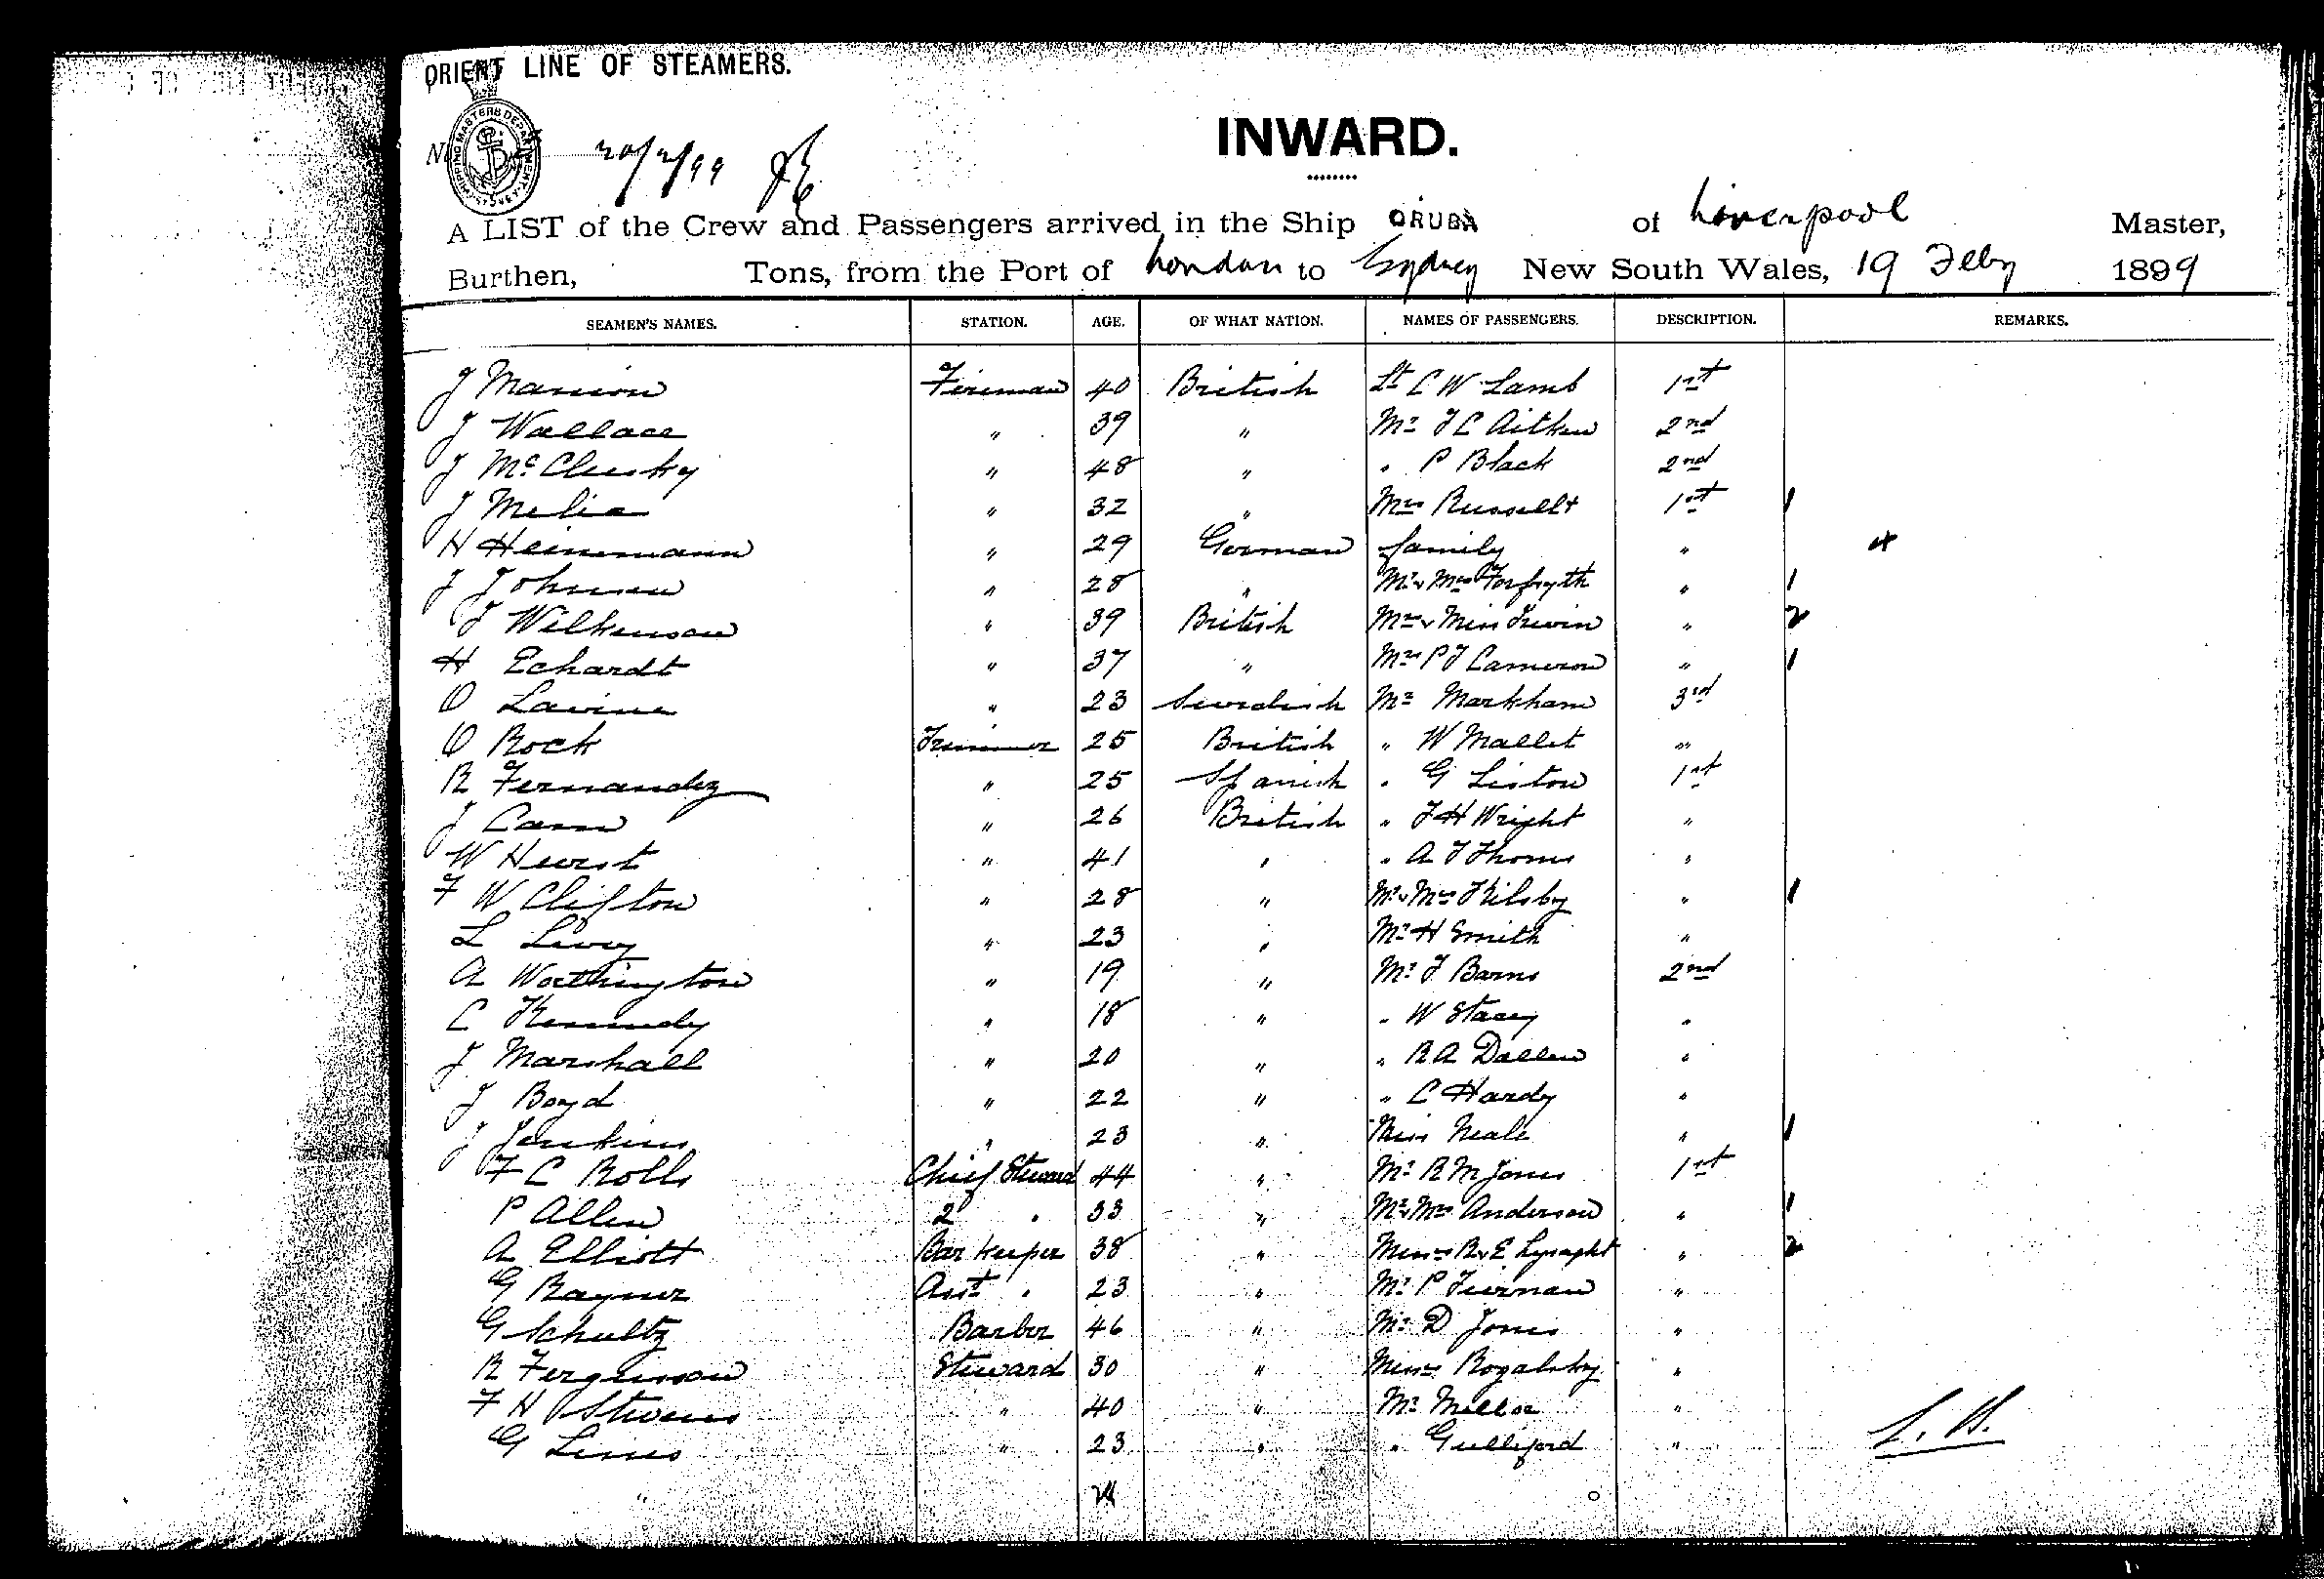 ORIENT LINE OF STEAMERS.
INWARD.
No 20/2/99
SHIPPING MASTERS DEPARTMENT SYDNEY
A LIST of the Crew and Passengers arrived in the Ship ORUBA of Liverpool Master,
Burthen, Tons, from the Port of London to Sydney New South Wales, 19 Feby 1899
SEAMEN'S NAMES. STATION. AGE. OF WHAT NATION. NAMES OF PASSENGERS. DESCRIPTION. REMARKS.
J Manion Fireman 40 British Lt C W Lamb 1st
J Wallace " 39 " Mr J C Aitken 2nd
J McClusky " 48 " " P Black 2nd
J Melia " 32 " Mrs Russell + 1st 1
H Heinemann " 29 German family " 4
J Johnson " 28 " Mr & Mrs Forsyth " 1
J Wilkinson " 39 British Mrs & Miss Irwin " 2
H Echardt " 37 " Mrs P J Cameron " 1
O Lavine " 23 Swedish Mr Markham 3rd
O Rock Trimmer 25 British " W Mallet "
R Fernandez " 25 Spanish " G Liston 1st
J Cann " 26 British " J H Wright "
W Hurst " 41 " " A J Thoms "
F W Clifton " 28 " Mr & Mrs Kilsby " 1
L Levy " 23 " Mr H Smith "
A Worthington " 19 " Mr J Barns 2nd
C Kennedy " 18 " " W Stacey "
J Marshall " 20 " " R A Dallen "
J Boyd " 22 " " C Hardy "
J Jenkins " 23 " Miss Neale " 1
F C Rolls Chief Steward 44 " Mr R M Jones 1st
P Allen 2 " 33 " Mr & Mrs Anderson " 1
A Elliott Bar Keeper 38 " Misses R & E Lysaght " 2
G Rayner Asst " 23 " Mr P Tiernan "
G Schultz Barber 46 " Mr D Jones "
R Fergusson Steward 30 " Messrs Rogalsky "
F H Stevens " 40 " Mr Miller "
G Lines " 23 " " Gulliford "